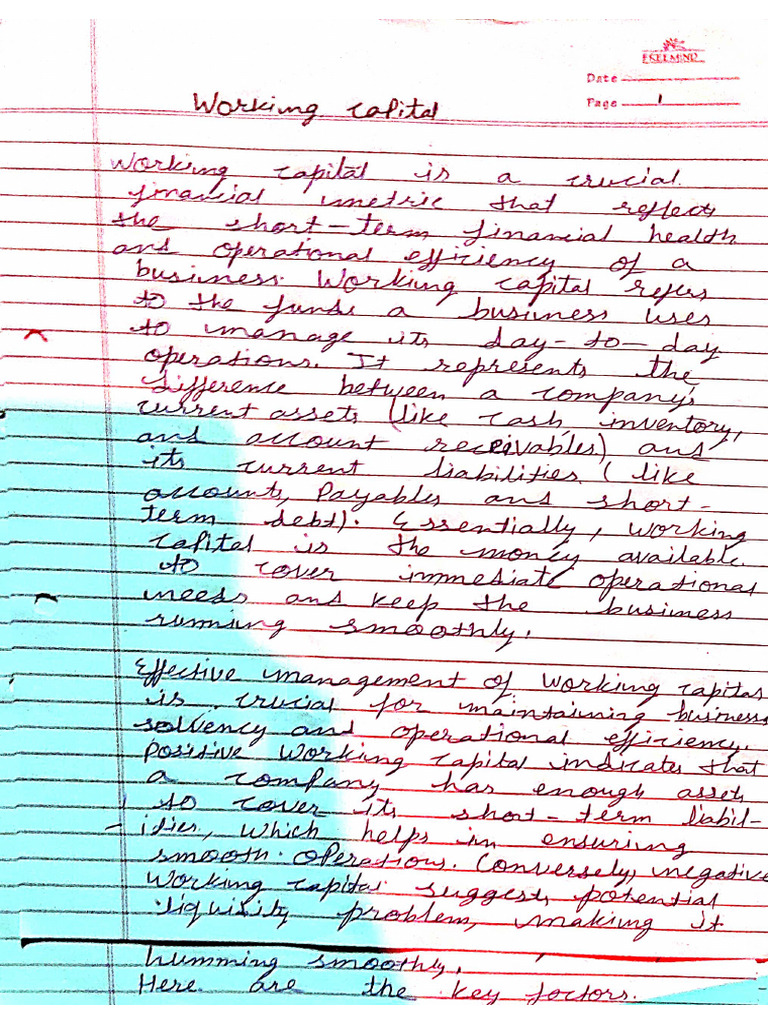 ESEEMIND
Date
Page 1
Working capital
Working capital is a crucial
financial metric that reflects
the short-term financial health
and operational efficiency of a
business. Working capital refers
to the funds a business uses
to manage its day-to-day
operations. It represents the
difference between a company's
current assets (like cash, inventory,
and account receivables) and
its current liabilities (like
accounts, Payables and short-
term debt). Essentially, working
capital is the money available
to cover immediate operational
needs and keep the business
running smoothly.
Effective management of working capital
is crucial for maintaining business
solvency and operational efficiency.
Positive working capital indicates that
a company has enough assets
to cover its short-term liabil-
ities, which helps in ensuring
smooth operations. Conversely, negative
working capital suggests potential
liquidity problem, making it
humming smoothly.
Here are the key factors.